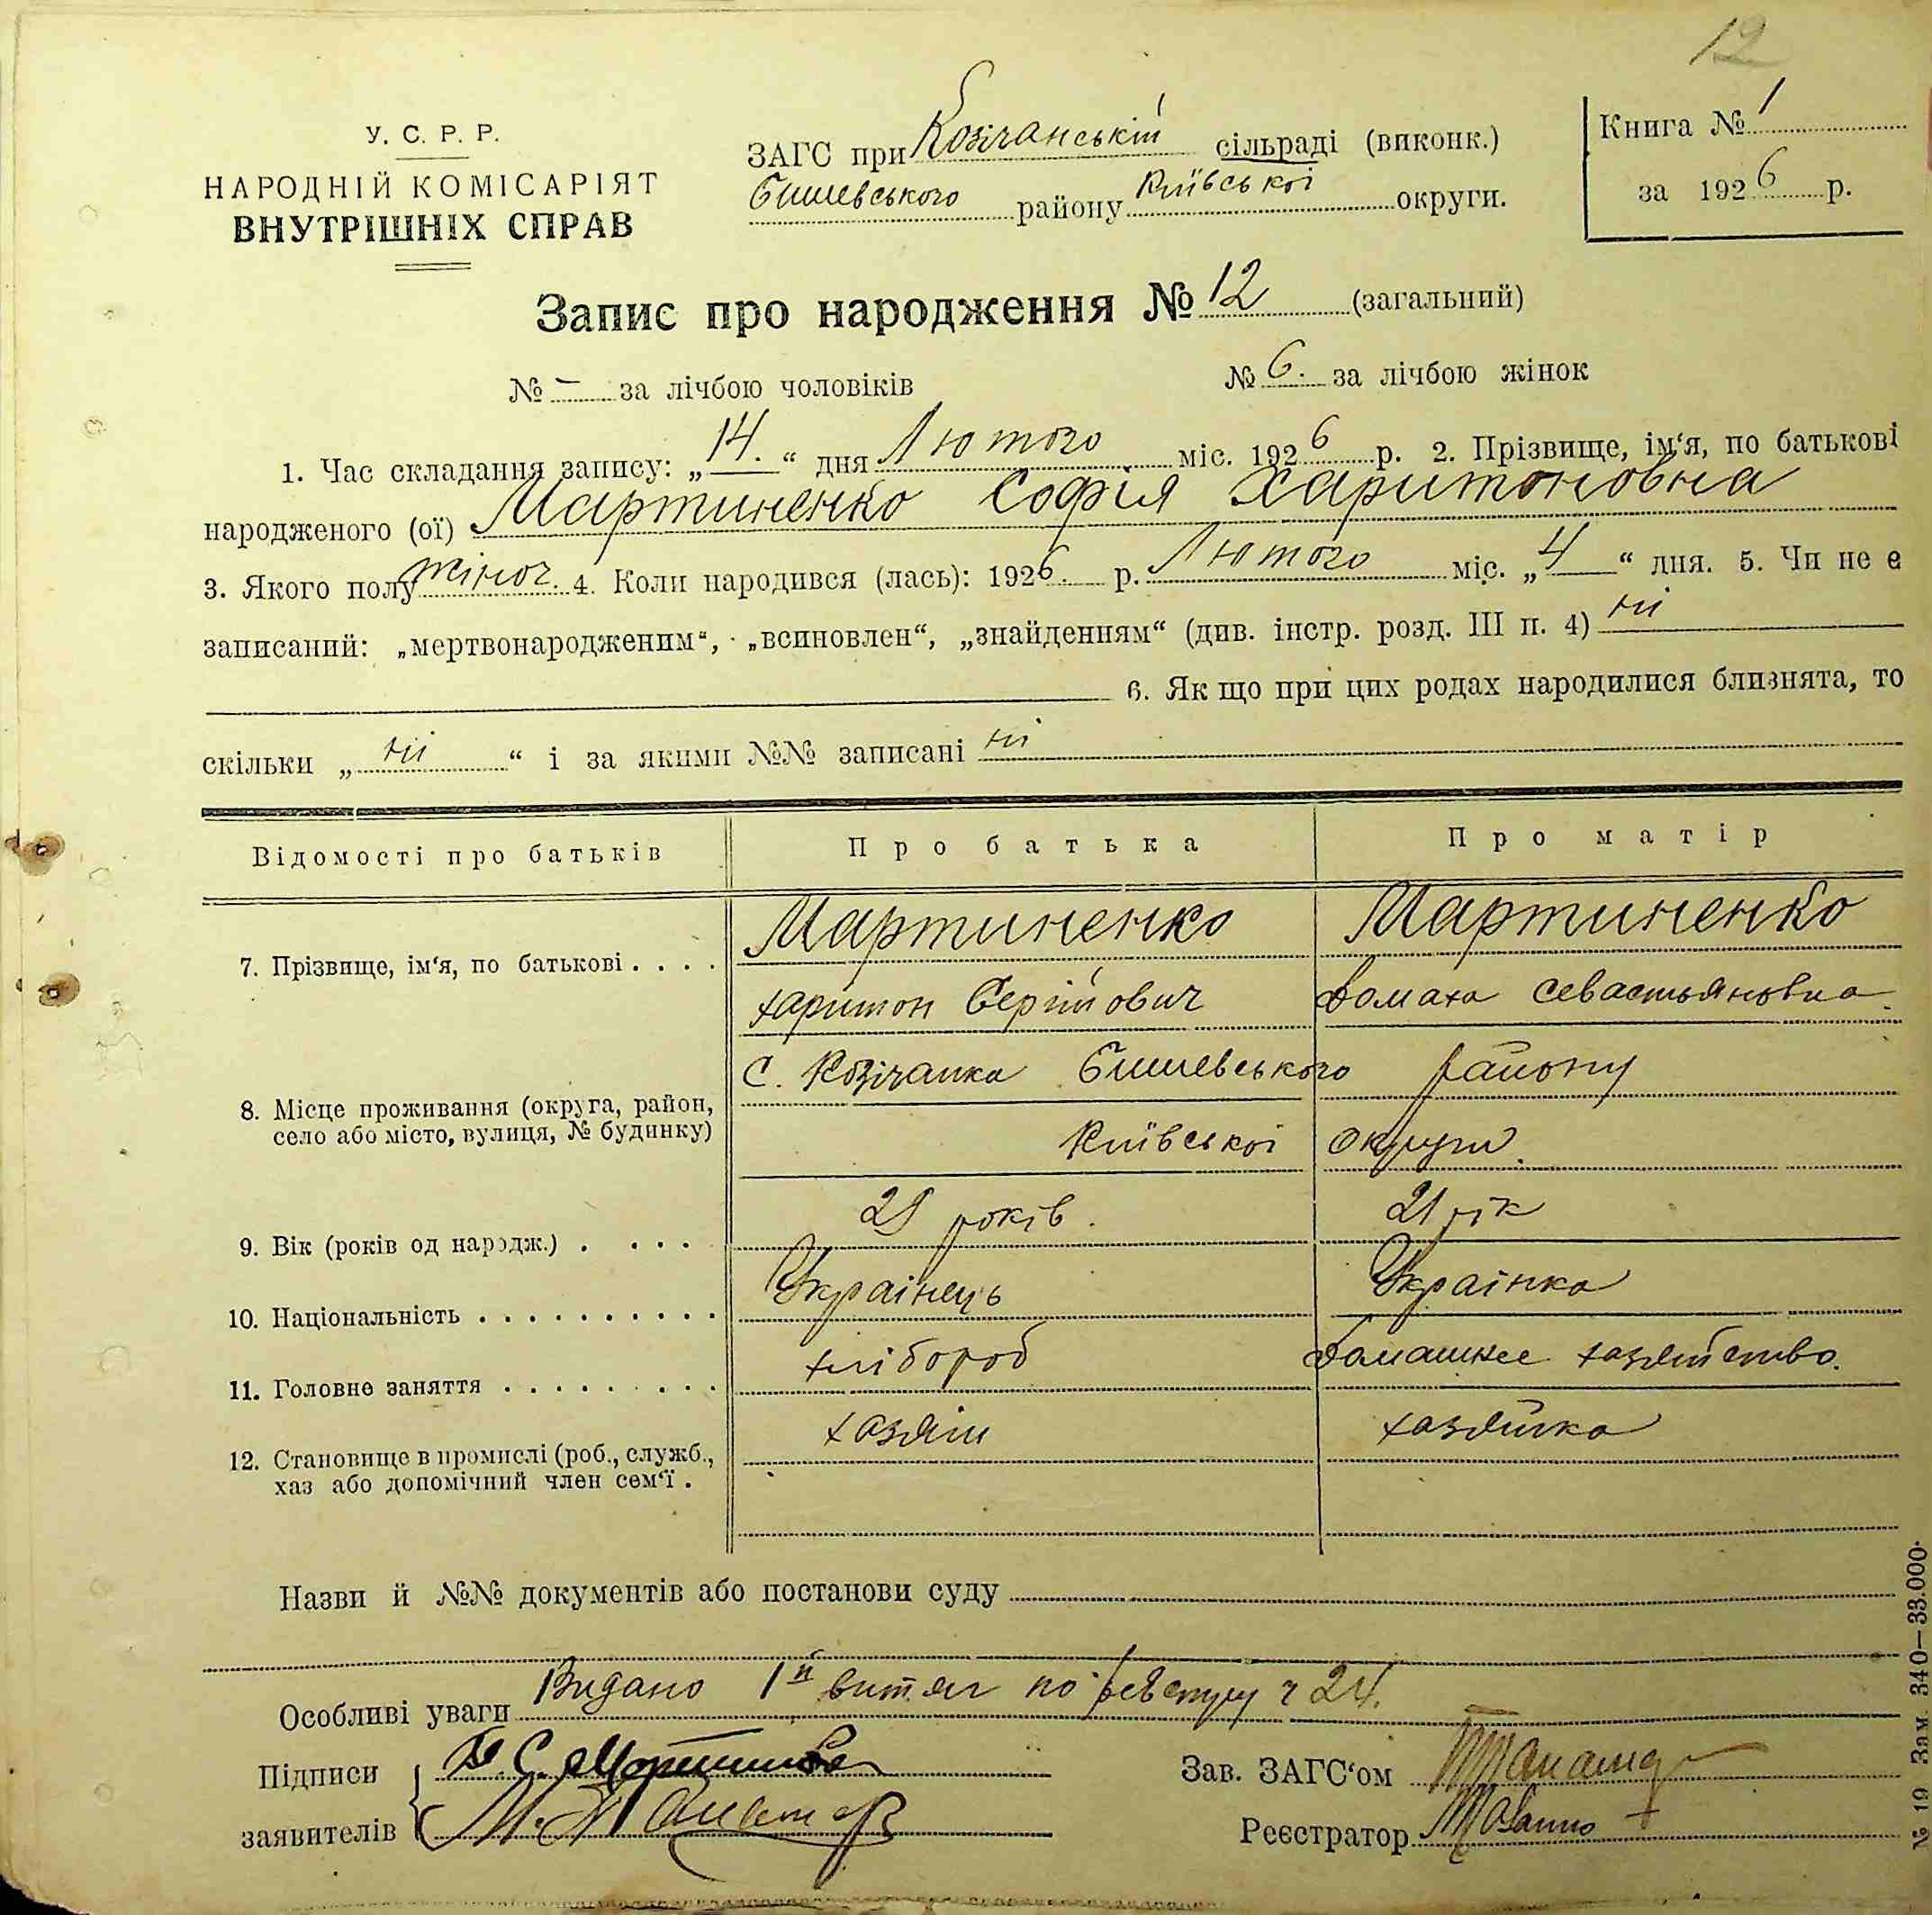 12
У. С. Р. Р.
НАРОДНІЙ КОМІСАРІЯТ
ВНУТРІШНІХ СПРАВ
ЗАГС при Козічанській сільраді (виконк.)
Бишевського району Київської округи.
Книга № 1
за 1926 р.
Запис про народження № 12 (загальний)
№ – за лічбою чоловіків № 6. за лічбою жінок
1. Час складання запису: „14.“ дня Лютого міс. 1926 р. 2. Прізвище, ім‘я, по батькові
народженого (ої) Мартиненко Софія Харитоновна
3. Якого полу жіноч. 4. Коли народився (лась): 1926. р. Лютого міс. „4“ дня. 5. Чи не є
записаний: „мертвонародженим“, „всиновлен“, „знайденням“ (див. інстр. розд. III п. 4) ні
6. Як що при цих родах народилися близнята, то
скільки „ні“ і за якими №№ записані ні
Відомості про батьків Про батька Про матір
7. Прізвище, ім‘я, по батькові . . . . Мартиненко Мартиненко
Харитон Сергійович Домаха Севастьяновна
8. Місце проживання (округа, район, село або місто, вулиця, № будинку) С. Козічанка Бишевського району
Київської округи.
9. Вік (років од народж.) . . . . років. 21 рік
10. Національність . . . . . . . . . . Українець Українка
11. Головне заняття . . . . . . . . . хлібороб домашнее хазяйство.
12. Становище в промислі (роб., служб., хаз або допомічний член сем‘ї . хазяїн хазяйка
Назви й №№ документів або постанови суду
Особливі уваги Видано 1й витяг по реєстру ч 24.
Підписи
заявителів
Зав. ЗАГС‘ом
Реєстратор
№ 19 Зам. 340—33.000.